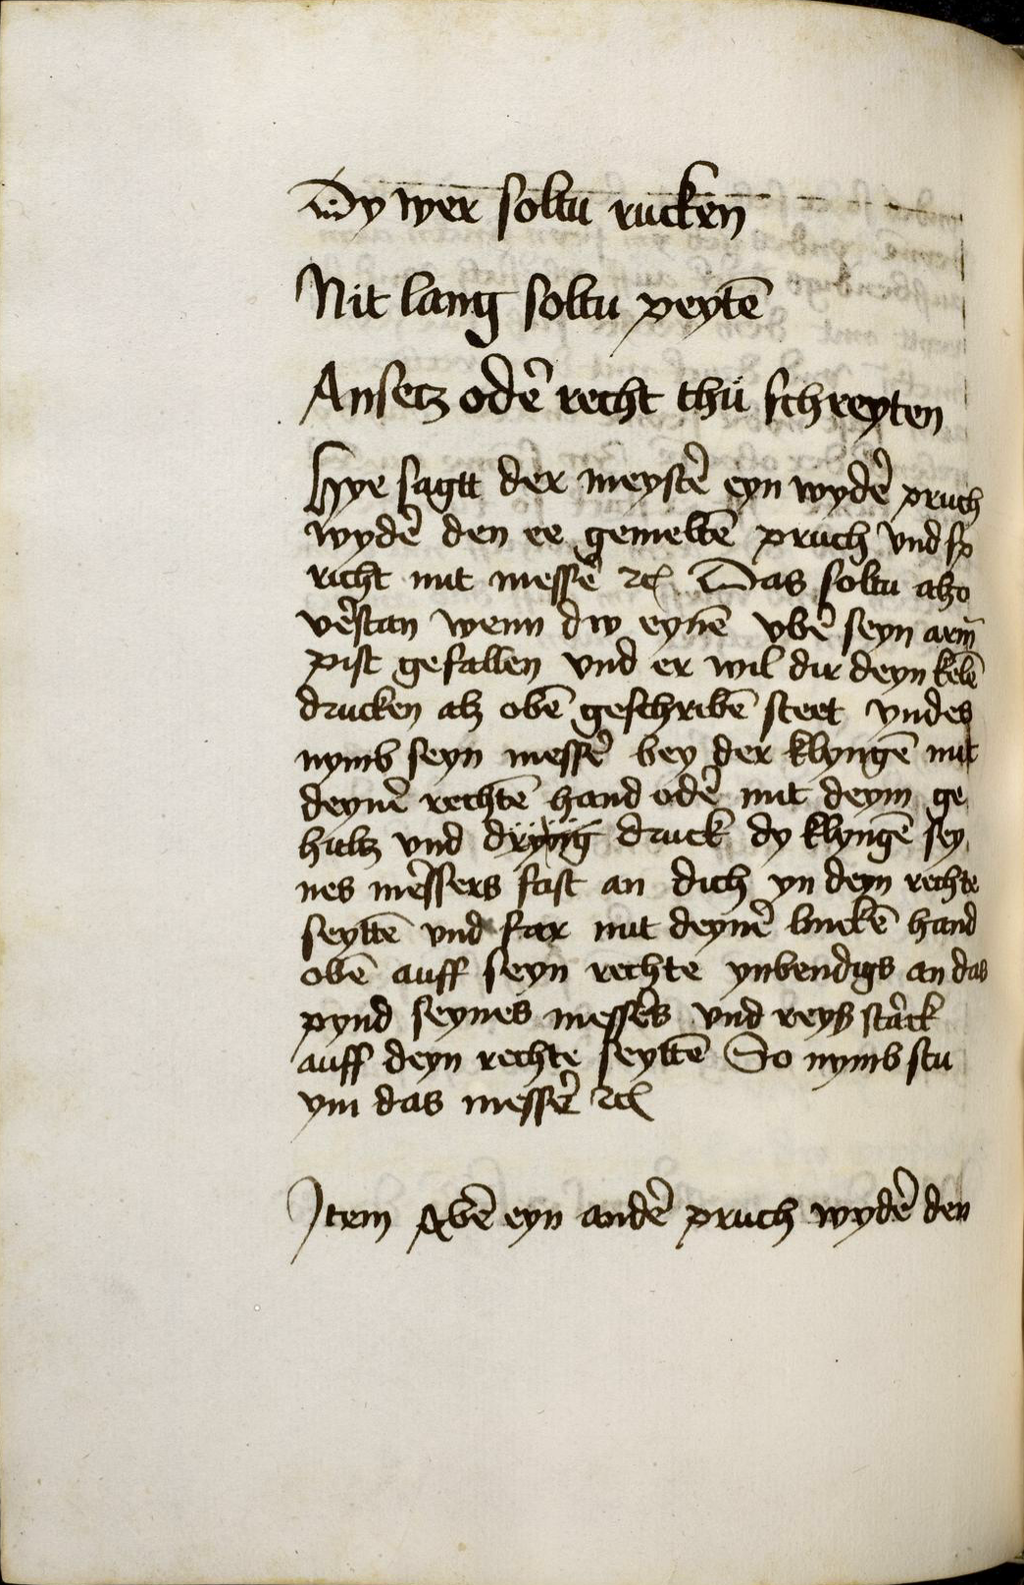 Dy wer soltu rucken
Nit lang soltu peytē
Ansetz odẽ recht thů schreyten
Hye sagtt der meystẽ eyn wydẽ pruch
wydẽ den ee gemeltē pruch vnd sp
richt mit messẽ ꝛc Das soltu alzo
vẽstan wenn dw eynē vbẽ seyn arm̄
pist gefallen vnd er wil dir deyn kelē
drucken alz obē geschribē steet yndes
nymb seyn messẽ bey der klyngē mit
deynẽ rechtē hand odẽ mit deym ge
hultz vnd druck dy klyngē sey
nes mẽssers fast an dich yn deyn rechte
seyttē vnd far mit deynẽ linckē hand
obē auff seyn rechte ynbendigs an das
pynd seynes messẽs vnd reyß stãrck
auff deyn rechte seyttē So nymbstu
ym das messẽ ꝛc
Item Abẽ eyn andẽ pruch wydẽ den